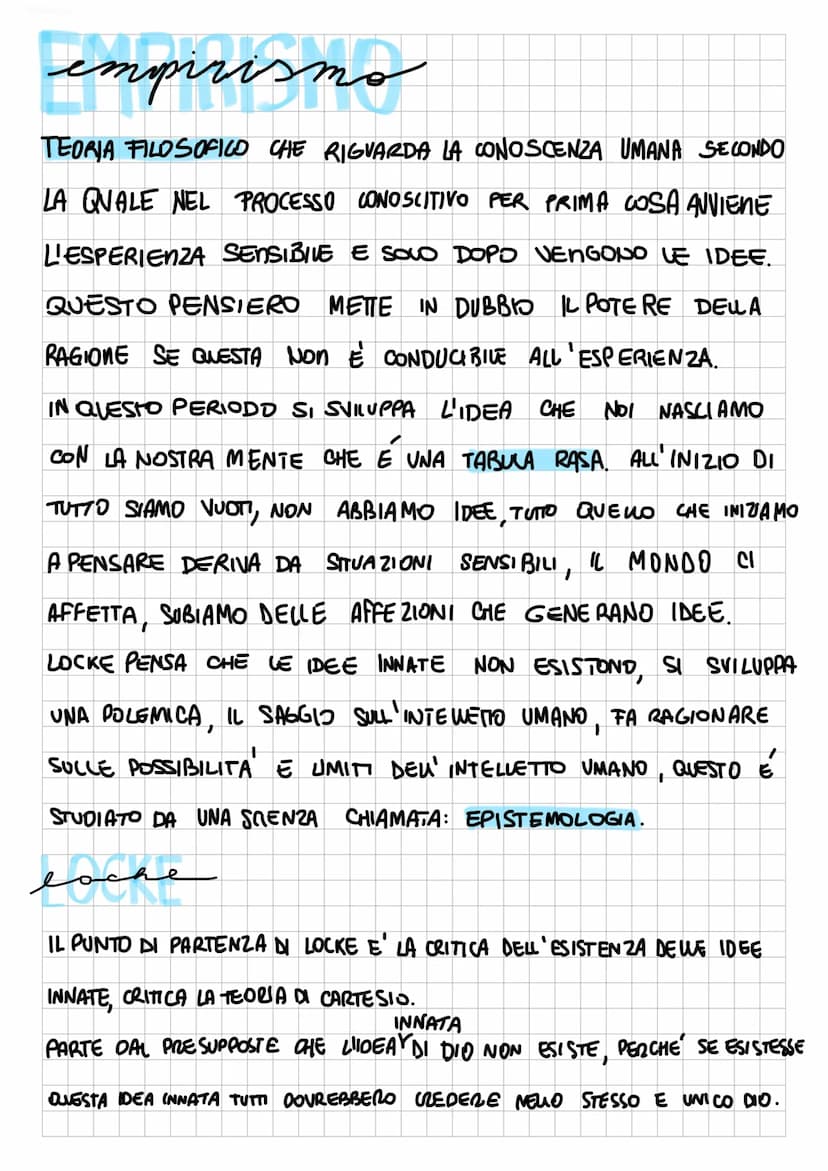 EMPIRISMO
empirismo
TEORIA FILOSOFICO CHE RIGUARDA LA CONOSCENZA UMANA SECONDO
LA QUALE NEL PROCESSO CONOSCITIVO PER PRIMA COSA AVVIENE
L'ESPERIENZA SENSIBILE E SOLO DOPO VENGONO LE IDEE.
QUESTO PENSIERO METTE IN DUBBIO IL POTERE DELLA
RAGIONE SE QUESTA NON É CONDUCIBILE ALL'ESPERIENZA.
IN QUESTO PERIODO SI SVILUPPA L'IDEA CHE NOI NASCIAMO
CON LA NOSTRA MENTE CHE É UNA TABULA RASA. ALL'INIZIO DI
TUTTO SIAMO VUOTI, NON ABBIAMO IDEE, TUTTO QUELLO CHE INIZIAMO
A PENSARE DERIVA DA SITUAZIONI SENSIBILI, IL MONDO CI
AFFETTA, SUBIAMO DELLE AFFEZIONI CHE GENERANO IDEE.
LOCKE PENSA CHE LE IDEE INNATE NON ESISTONO, SI SVILUPPA
UNA POLEMICA, IL SAGGIO SULL'INTELLETTO UMANO, FA RAGIONARE
SULLE POSSIBILITA' E LIMITI DELL'INTELLETTO UMANO, QUESTO É
STUDIATO DA UNA SCIENZA CHIAMATA: EPISTEMOLOGIA.
LOCKE
locke
IL PUNTO DI PARTENZA DI LOCKE E' LA CRITICA DELL'ESISTENZA DELLE IDEE
INNATE, CRITICA LA TEORIA DI CARTESIO.
PARTE DAL PRESUPPOSTE CHE L'IDEA INNATA DI DIO NON ESISTE, PERCHÉ SE ESISTESSE
QUESTA IDEA INNATA TUTTI DOVREBBERO CREDERE NELLO STESSO E UNICO DIO.